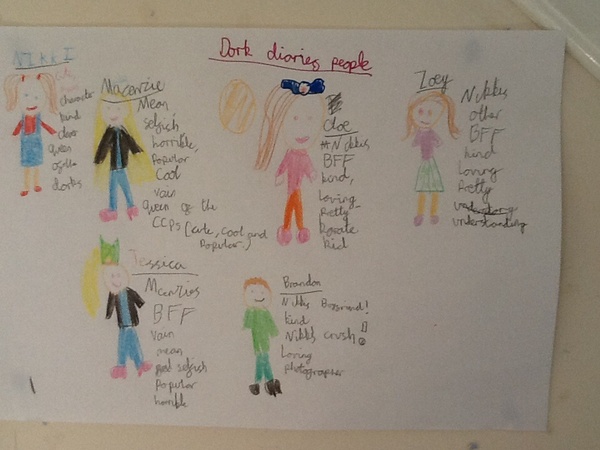 Dork diaries people
NIKKI
Cute
character
kind
clever
queen
of the
dorks
Macenzie
Mean
selfish
horrible,
Popular
Cool
vain
queen of the
CCPs (cute, cool and
Popular.)
Cloe
Nikkis
BFF
kind,
Loving
Pretty
kid
Zoey
Nikkis
other
BFF
kind
Loving
Pretty
understanding
Jessica
Macenzies
BFF
vain
mean
selfish
Popular
horrible
Brandon
Nikkis Boyfriend!
kind
Nikkis crush!
Loving
photographer